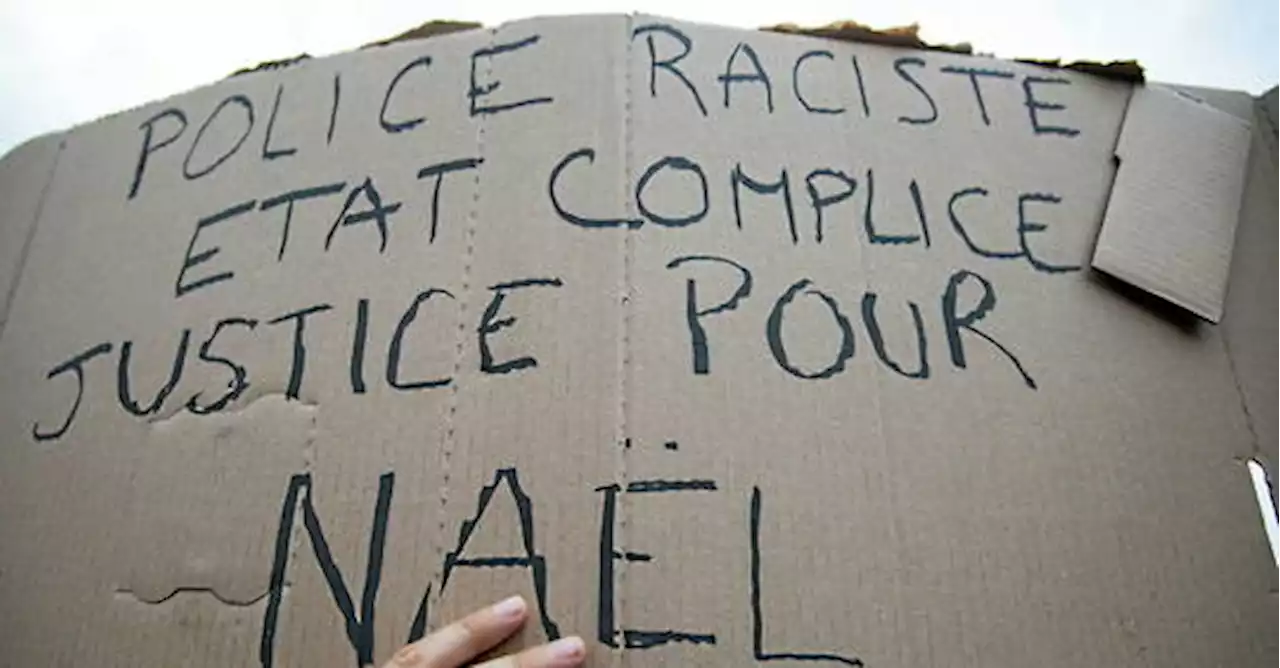 POLICE RACISTE
ETAT COMPLICE
JUSTICE POUR
NAËL